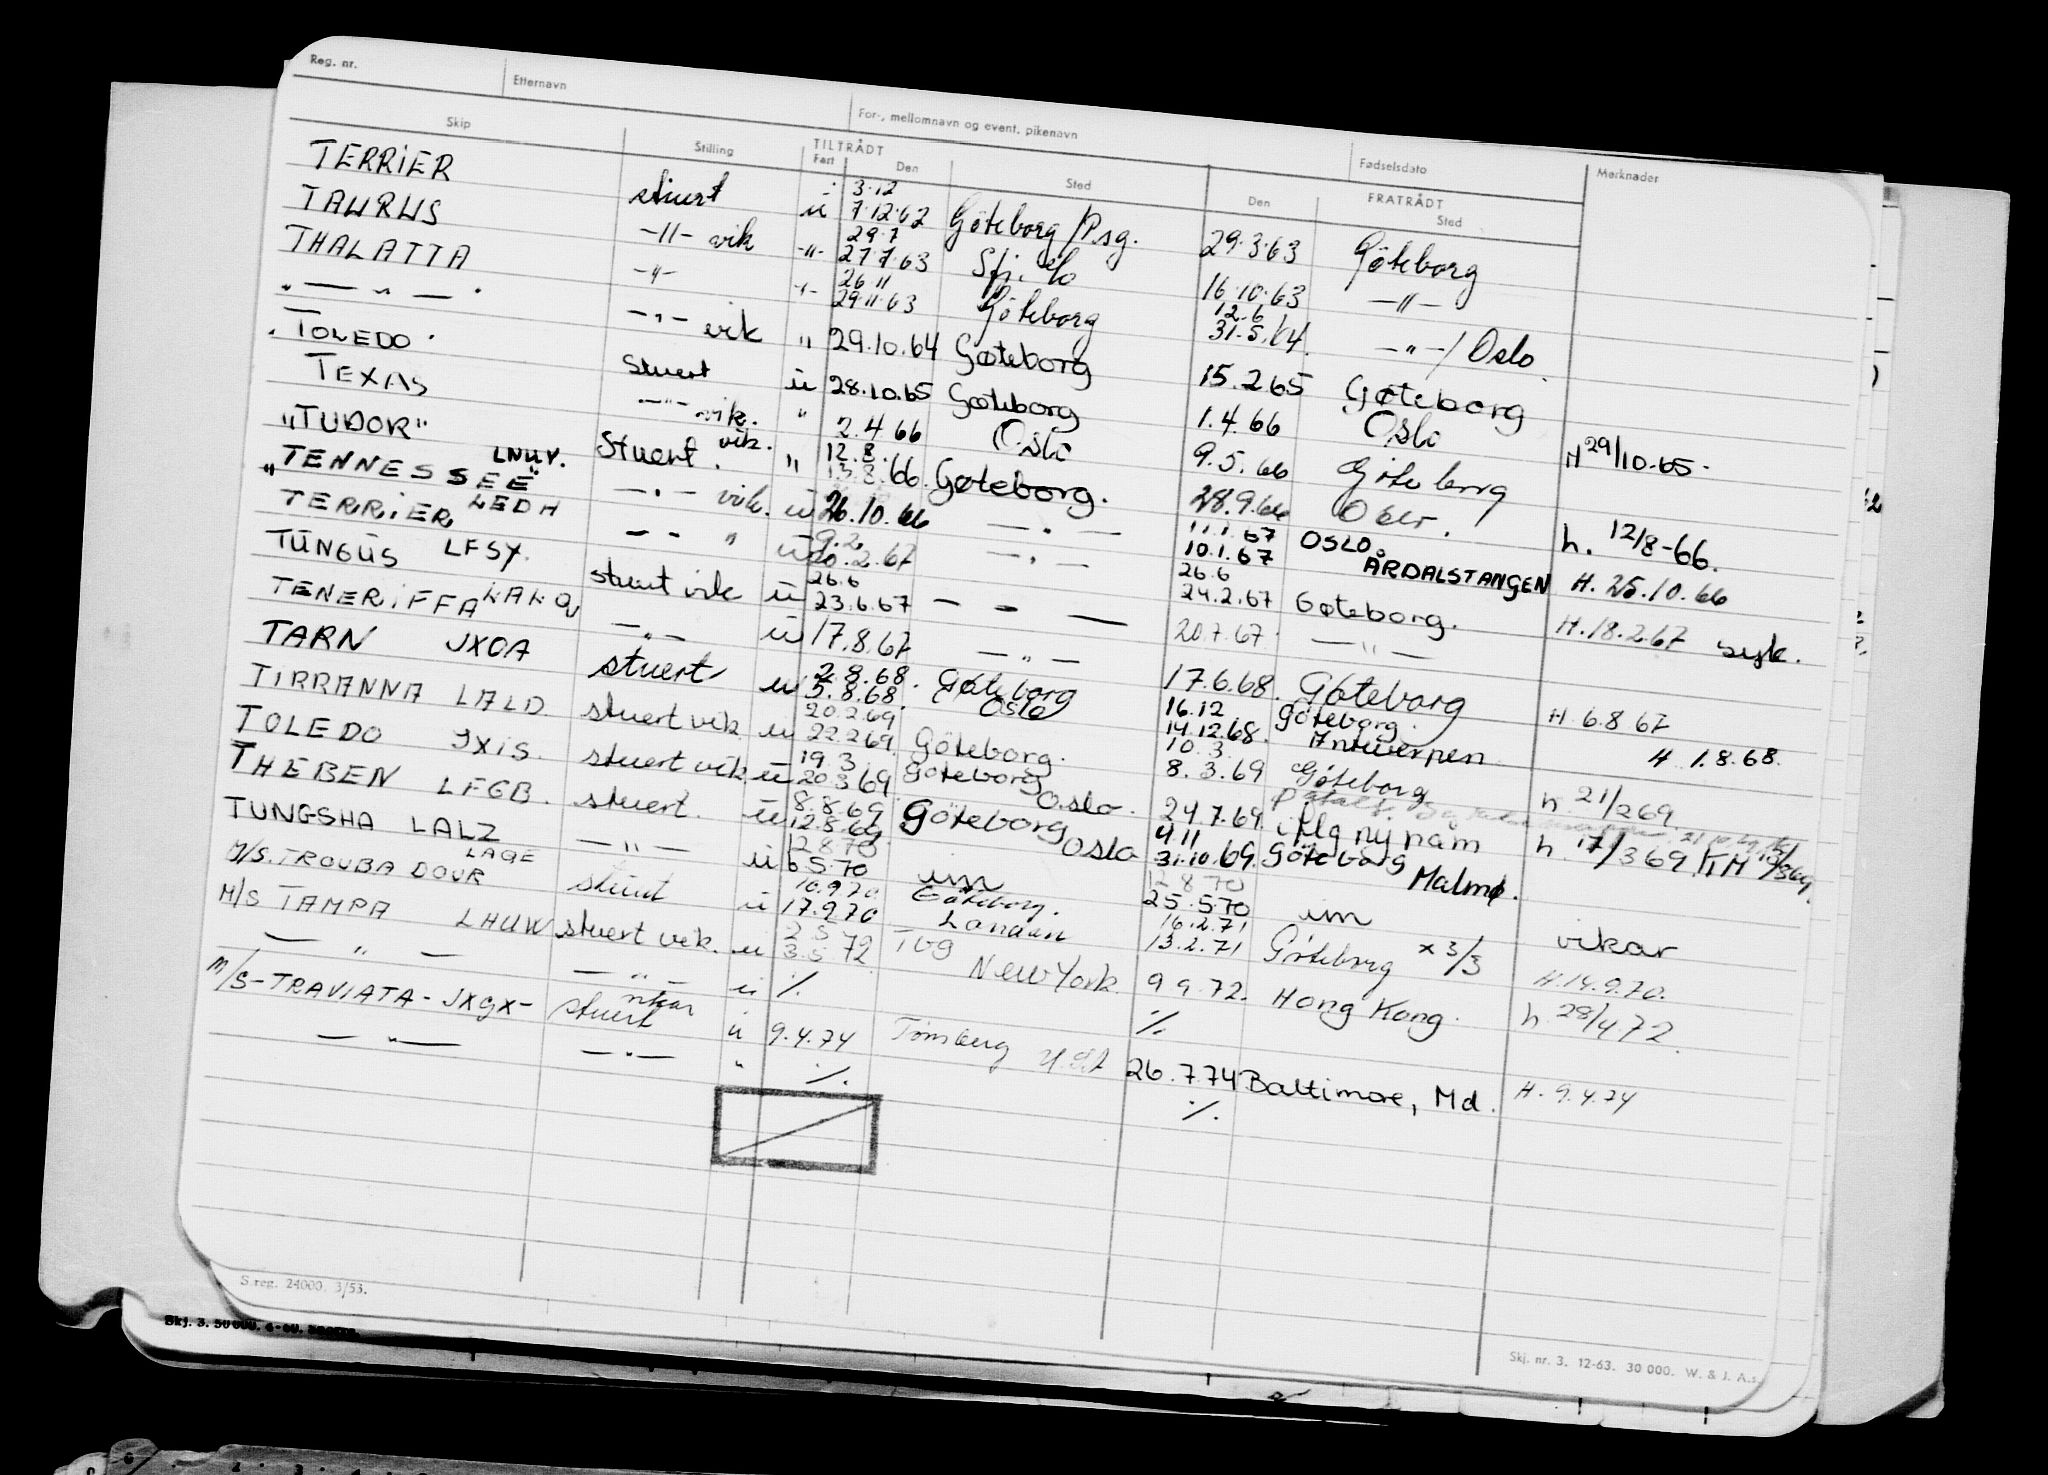 Reg. nr. Etternavn For-, mellomnavn og event. pikenavn Fødselsdato Merknader
Skip Stilling TILTRÅDT FRATRÅDT
Fart Den Sted Den Sted
TERRIER stuert u 3.12 7.12.62 Göteborg /P.sg. 29.3.63 Göteborg
TAURUS -"- vik -"- 29.7 27.7.63 16.10.63 -"-
THALATTA -"- -"- 26 11 29.11.63 Göteborg 12.6 31.5.64. -"-/ Oslo
"— " — " -"- vik " 29.10.64 Gøteborg 15.2.65 Gøteborg
TOLEDO Stuert u 28.10.65 Gøteborg 1.4.66 Oslo H 29/10.65.
TEXAS -"- vik. " 2.4 66 Oslo 9.5.66 Göteborg
"TUDOR" LNUV. Stuert vik. " 12.8. 13.8.66. Gøteborg. 28.9.66 Oslo. h. 12/8-66.
"TENNESSEE" LEDH -"- vik. u 26.10.66 — " — 11.1.67 10.1.67 OSLO. ÅRDALSTANGEN H. 25.10.66
TERRIER LFSY. - - " u 9.2. 20.2.67 — " — 26.6 24.2.67 Gøteborg. H.18.2.67 syk.
TUNGUS LAHQ stuert vik u 26.6 23.6.67 — " — 20.7.67 — " —
TENERIFFA JXOA — " — u 17.8.67 — " — 17.6.68. Gøteborg H. 6.8 67
TARN stuert u 2.8.68. 5.8.68. Gøteborg Oslo 16.12 14.12.68. Göteborg. Antwerpen H 1.8.68.
TIRRANNA LALD. stuert vik u 20.2.69 22.2.69. Göteborg. 10.3 8.3.69 Göteborg h 21/2 69.
TOLEDO JXIS. stuert vik u 19.3 20.3.69 Göteborg Oslo. 24.7.69. iflg ny nam h. 17/3 69 KM
THEBEN LFGB. stuert. u 8.8.69 12.8.69 Göteborg Oslo 4.11 31.10.69. Göteborg Malmø.
TUNGSHA LALZ — " — u 12 8 70 6 5 70 um 12 8 70 25.5.70 um vikar
M/S. TROUBADOUR LAGE stuert u 10.9.70 17.9.70 Göteborg. London 16.2.71 13.2.71 Göteborg x 3/3 H.14.9.70.
M/S TAMPA LHUW stuert vik. u 2 5 3.5 72. Tbg New York 9 9.72. Hong Kong. h. 28/4 72.
— " — — " — u %. %.
M/S-TRAVIATA-JXGX- stuert vikar u 9.4.74 Tønsberg 26.7.74 Baltimore, Md. H. 9.4.74
— " — — " — " %. %.
S reg. 24000. 3/53.
Skj. 3. 50 000.
Skj. nr. 3. 12-63. 30 000. W. & J. A.s.